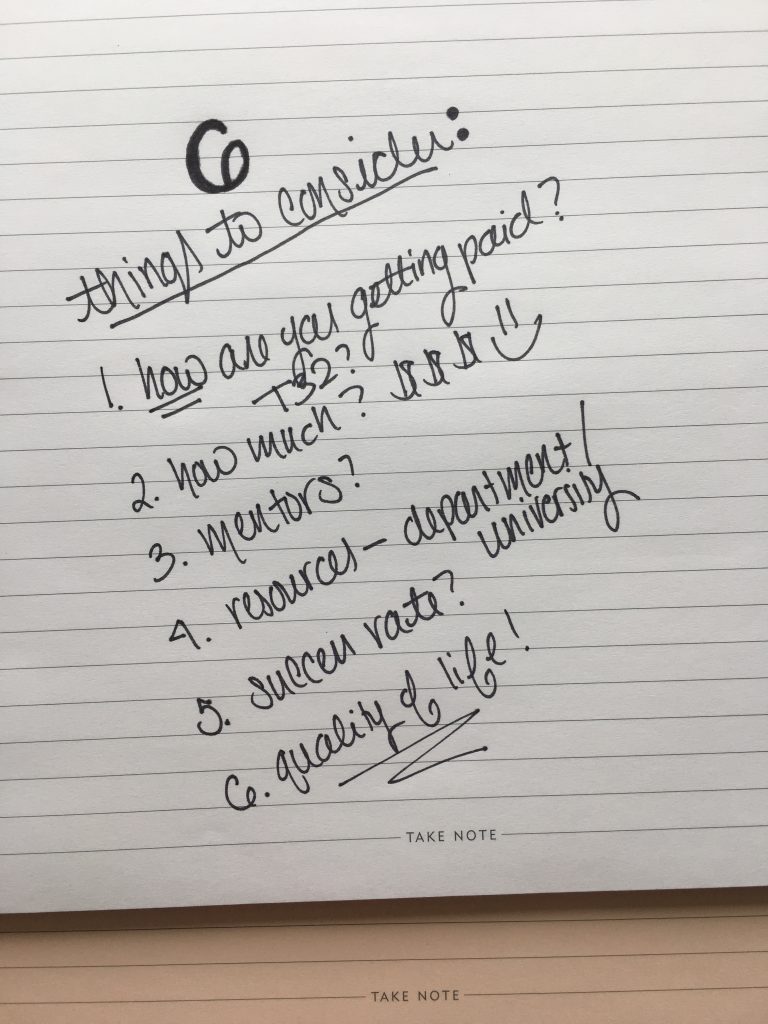 6
things to consider:
1. how are you getting paid?
T32?
2. how much? $$$
3. mentors?
4. resources - department/
university
5. success rate?
6. quality of life!
TAKE NOTE
TAKE NOTE